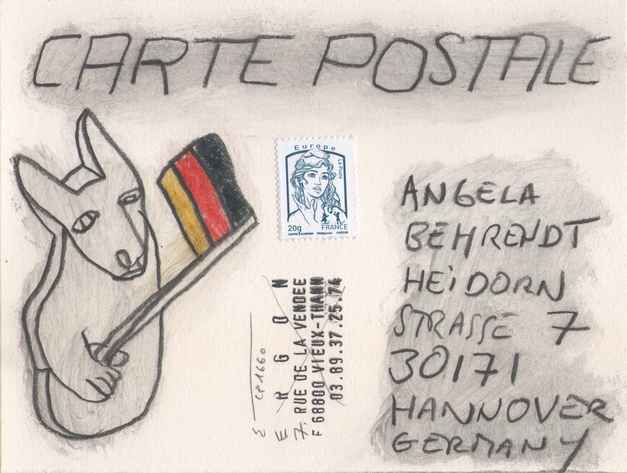 CARTE POSTALE
Europe
La Poste
20g
FRANCE
ERGON
7. RUE DE LA VENDEE
F 68800 VIEUX-THANN
03.89.37.25.74
ANGELA
BEHRENDT
HEiDORN
STRASSE 7
30171
HANNOVER
GERMANY